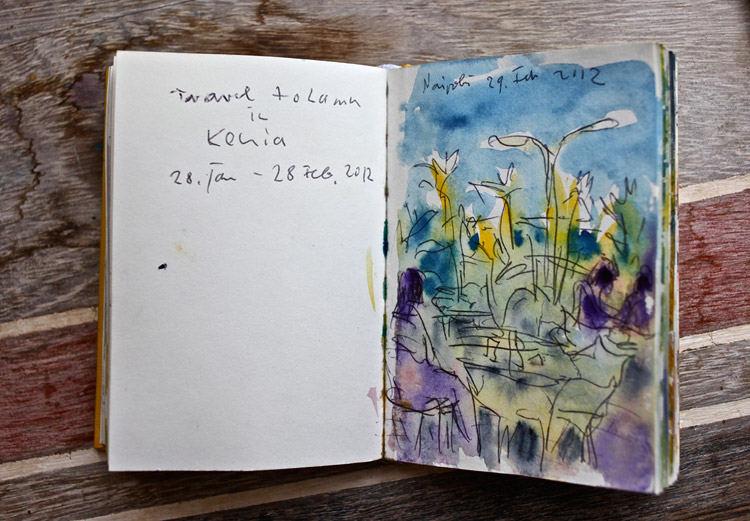 Travel to Lamu
in
Kenia
28. Jan - 28 Feb. 2012
Nairobi 29. Feb 2012